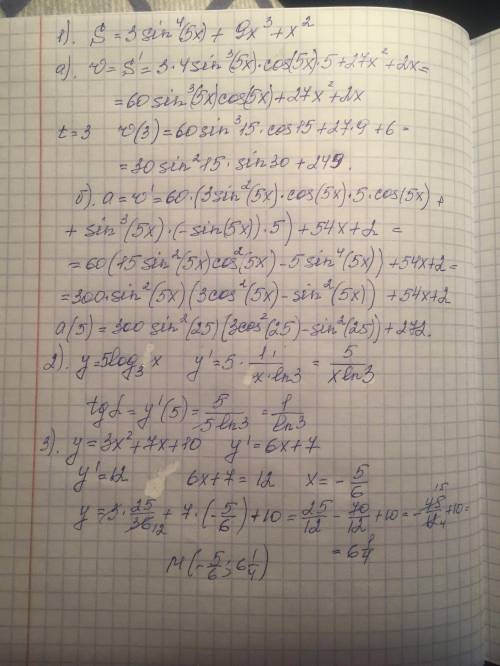 1). S = 3 sin⁴(5x) + 9x³ + x²
а). v = S' = 3·4 sin³(5x)·cos(5x)·5 + 27x² + 2x =
= 60 sin³(5x) cos(5x) + 27x² + 2x
t = 3 v(3) = 60 sin³15·cos15 + 27·9 + 6 =
= 30 sin²15·sin30 + 249.
б). a = v' = 60·(3 sin²(5x)·cos(5x)·5·cos(5x) +
+ sin³(5x)·(-sin(5x))·5) + 54x + 2 =
= 60(15 sin²(5x)cos²(5x) - 5 sin⁴(5x)) + 54x + 2 =
= 300·sin²(5x)(3cos²(5x) - sin²(5x)) + 54x + 2
a(5) = 300 sin²(25)(3cos²(25) - sin²(25)) + 272.
2). y = 5log₃ x y' = 5·1/(x·ln3) = 5/(x ln3)
tg α = y'(5) = 5/(5 ln3) = 1/ln3
3). y = 3x² + 7x + 10 y' = 6x + 7
y' = 12 6x + 7 = 12 x = -5/6
y = 3·25/36 12 + 7·(-5/6) + 10 = 25/12 - 70/12 + 10 = -45/12 15 4 + 10 =
= 6 1/4
M(-5/6; 6 1/4)